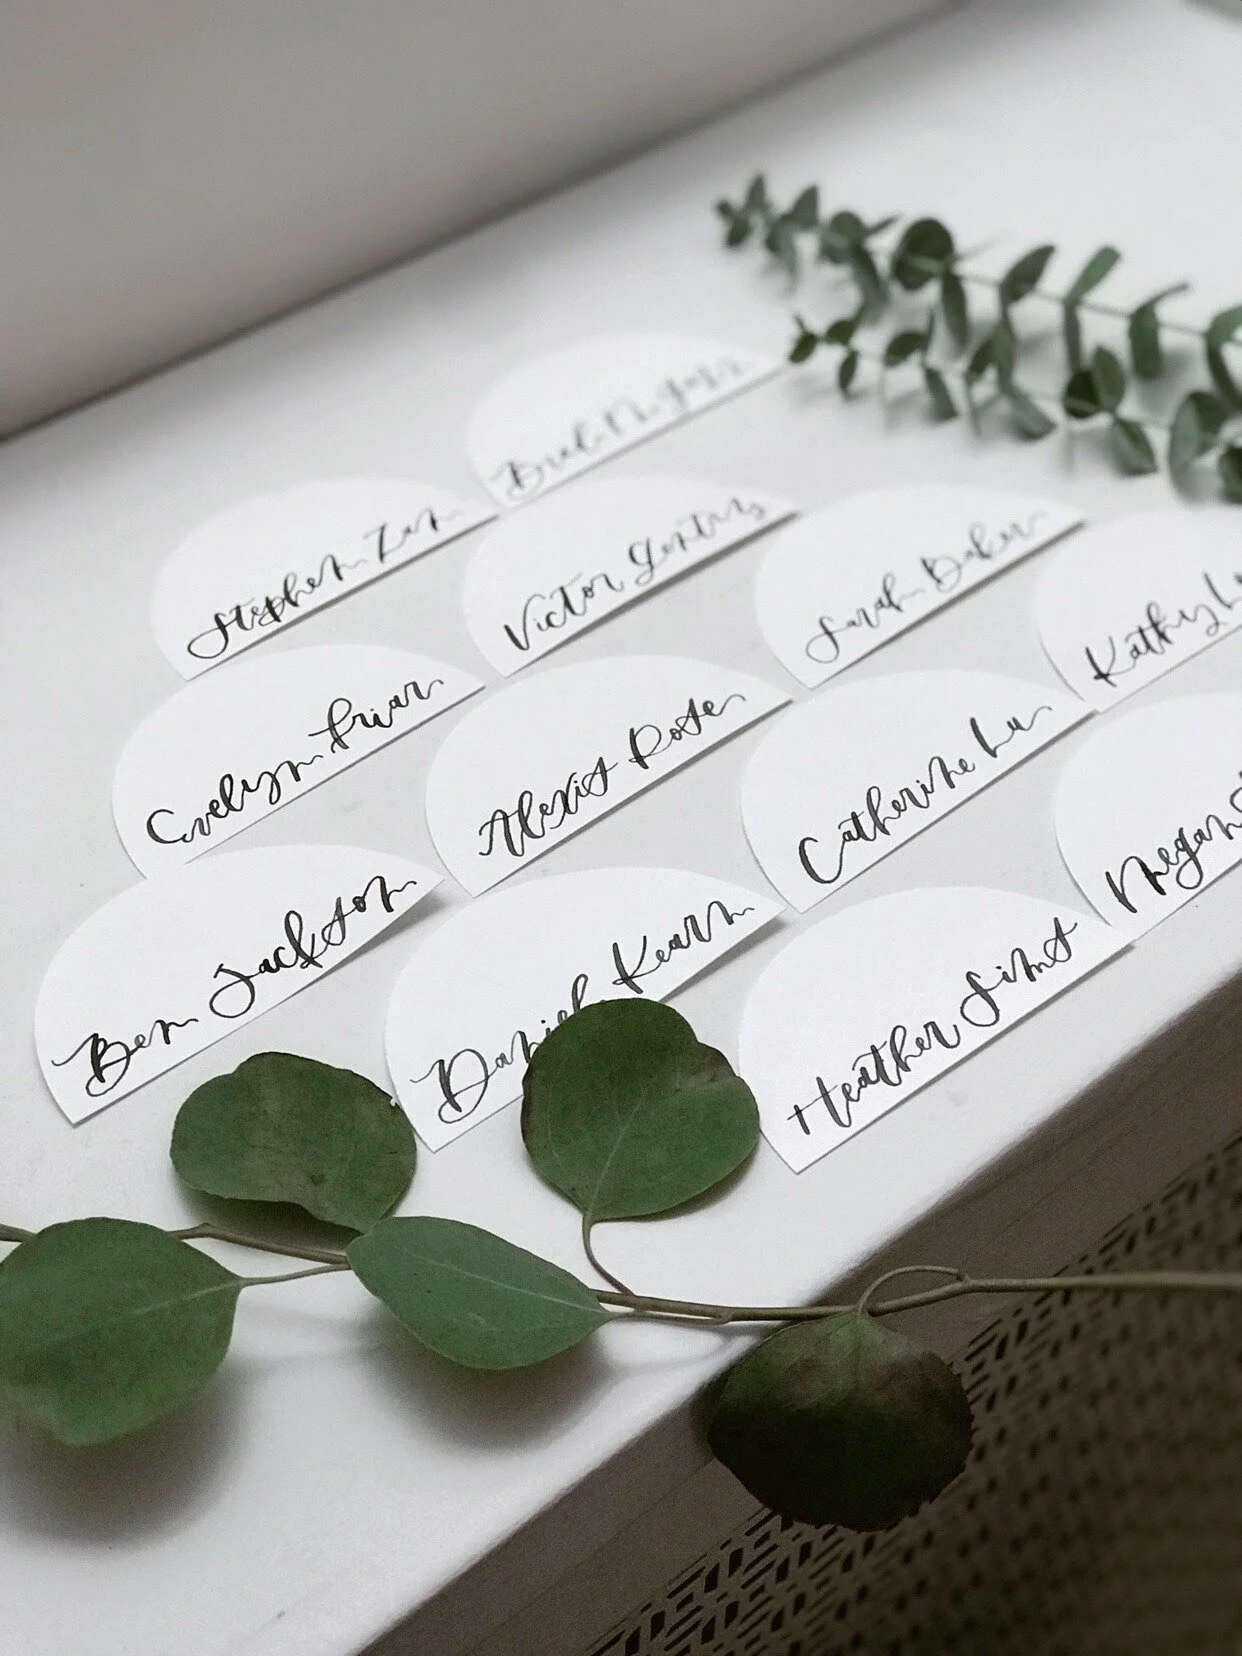 Brad
Stephen Zan
Victor Gentry
Sarah Baker
Kathy
Evelyn Friar
Alexis Rose
Catherine Lu
Megan
Ben Jackson
Daniel Kearn
Heather Sims